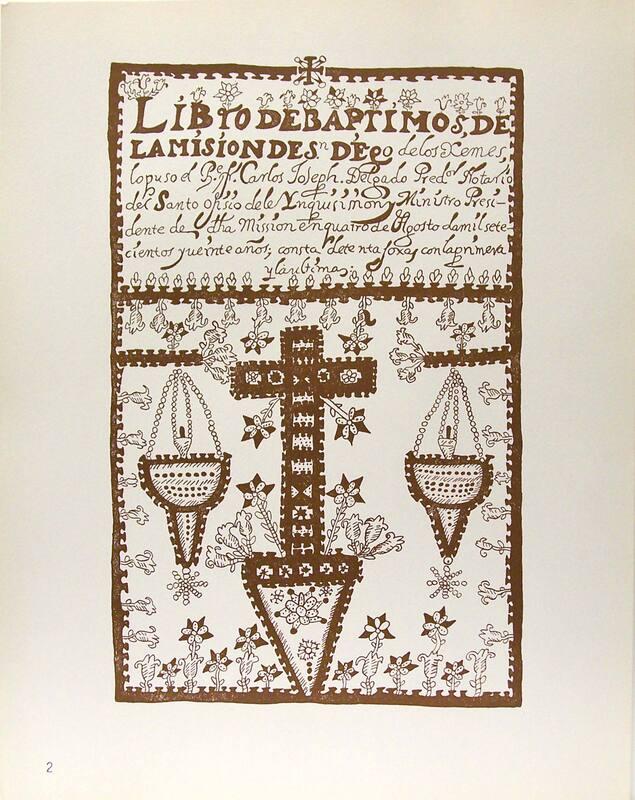 LIBrO DE BAPTIMOS, DE
LA MISION DE Sn. DIEgo de los Xemes,
lo puso el Pe. fr. Carlos Joseph. Delgado Predor. Notario
del Santo ofisio dela Ynquisision, y Ministro Presi-
dente de dha Mission en quatro de Agosto de mil sete-
cientos y ueinte años; consta de foxas con la primera
y la ultima;
2